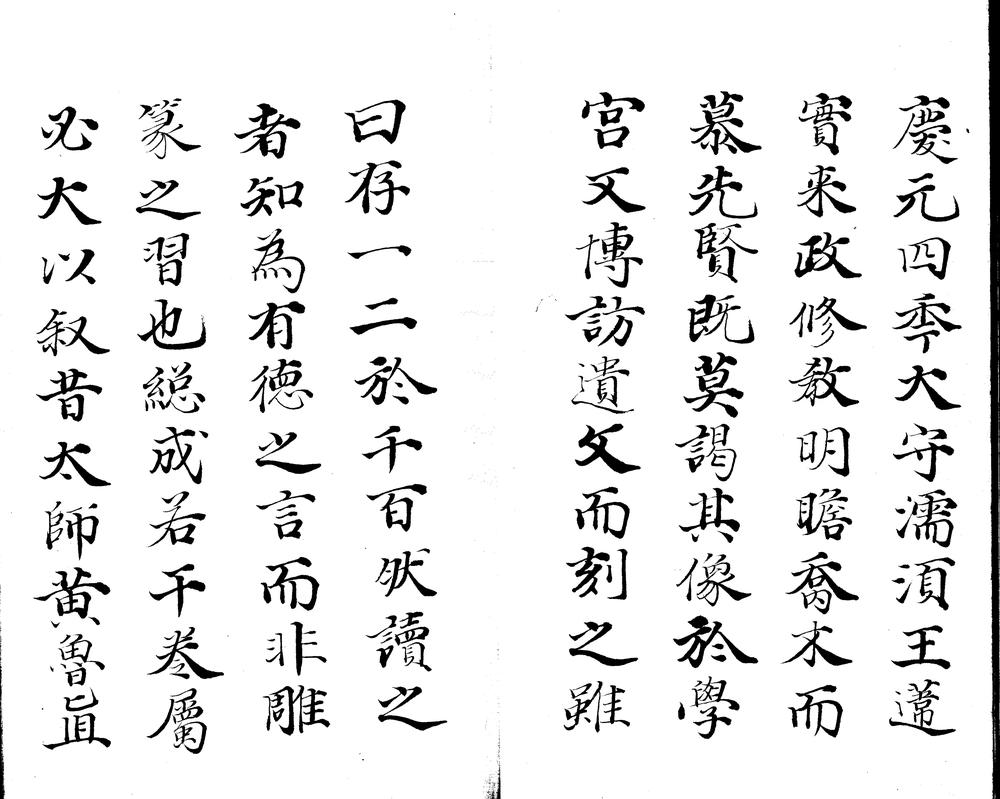 慶元四秊大守濡須王
實来政修教明瞻喬木而
慕先賢既莫謁其像於學
宫又博訪遺文而刻之雖
曰存一二於千百肰讀之
者知為有徳之言而非雕
篆之習也総成若干卷屬
必大以叙昔太師黄魯直